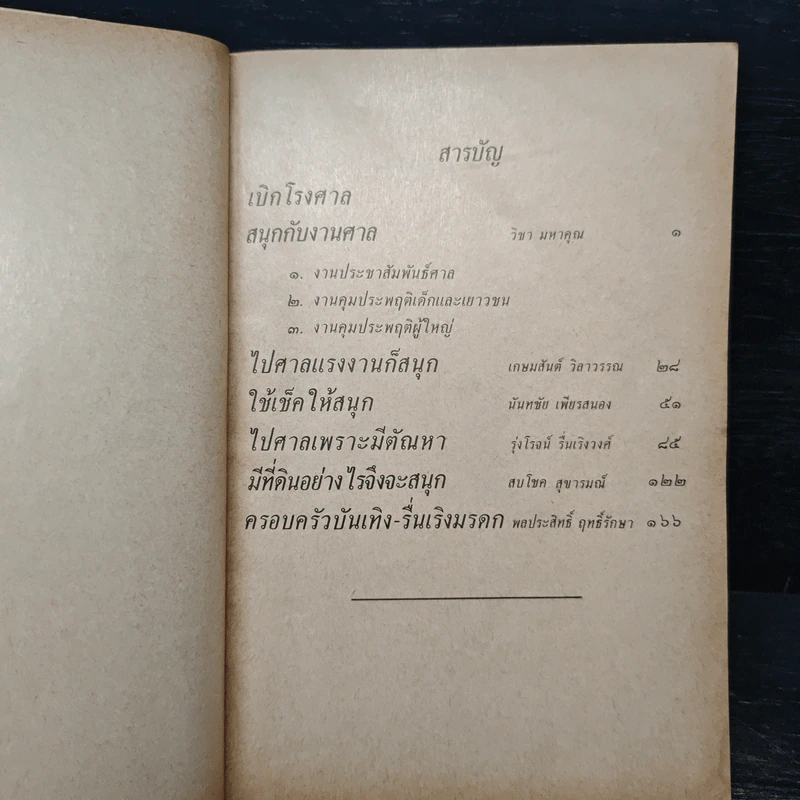 สารบัญ
เบิกโรงศาล
สนุกกับงานศาล วิชา มหาคุณ ๑
๑. งานประชาสัมพันธ์ศาล
๒. งานคุมประพฤติเด็กและเยาวชน
๓. งานคุมประพฤติผู้ใหญ่
ไปศาลแรงงานก็สนุก เกษมสันต์ วิลาวรรณ ๒๘
ใช้เช็คให้สนุก นันทชัย เพียรสนอง ๕๑
ไปศาลเพราะมีตัณหา รุ่งโรจน์ รื่นเริงวงศ์ ๘๕
มีที่ดินอย่างไรจึงจะสนุก สบโชค สุขารมณ์ ๑๒๒
ครอบครัวบันเทิง-รื่นเริงมรดก พลประสิทธิ์ ฤทธิ์รักษา ๑๖๖